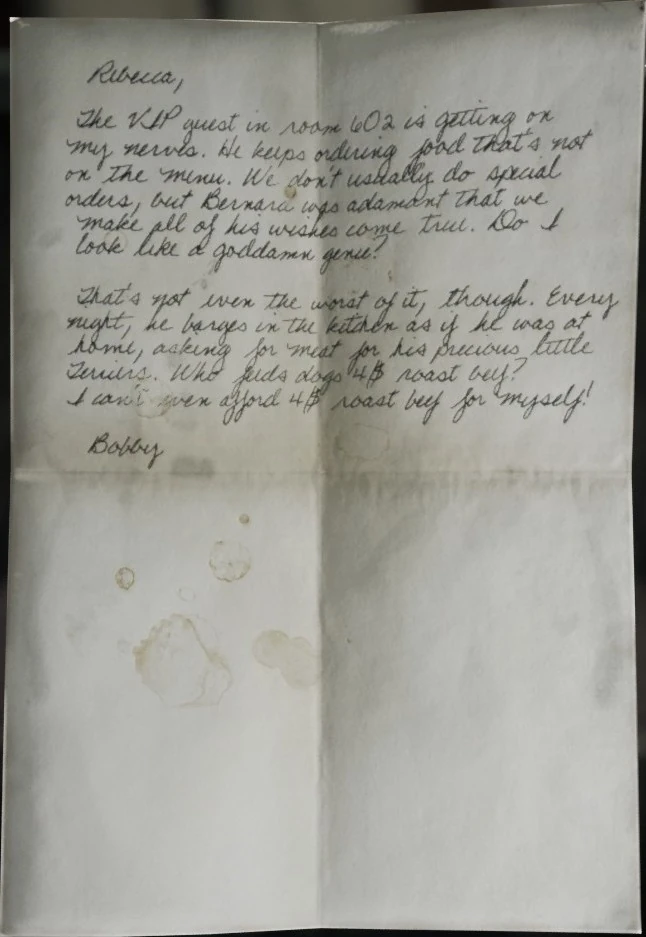 Rebecca,
The VIP guest in room 602 is getting on
my nerves. He keeps ordering food that's not
on the menu. We don't usually do special
orders, but Bernard was adamant that we
make all of his wishes come true. Do I
look like a goddamn genie?
That's not even the worst of it, though. Every
night, he barges in the kitchen as if he was at
home, asking for meat for his precious little
Terriers. Who feeds dogs 4$ roast beef?
I can't even afford 4$ roast beef for myself!
Bobby